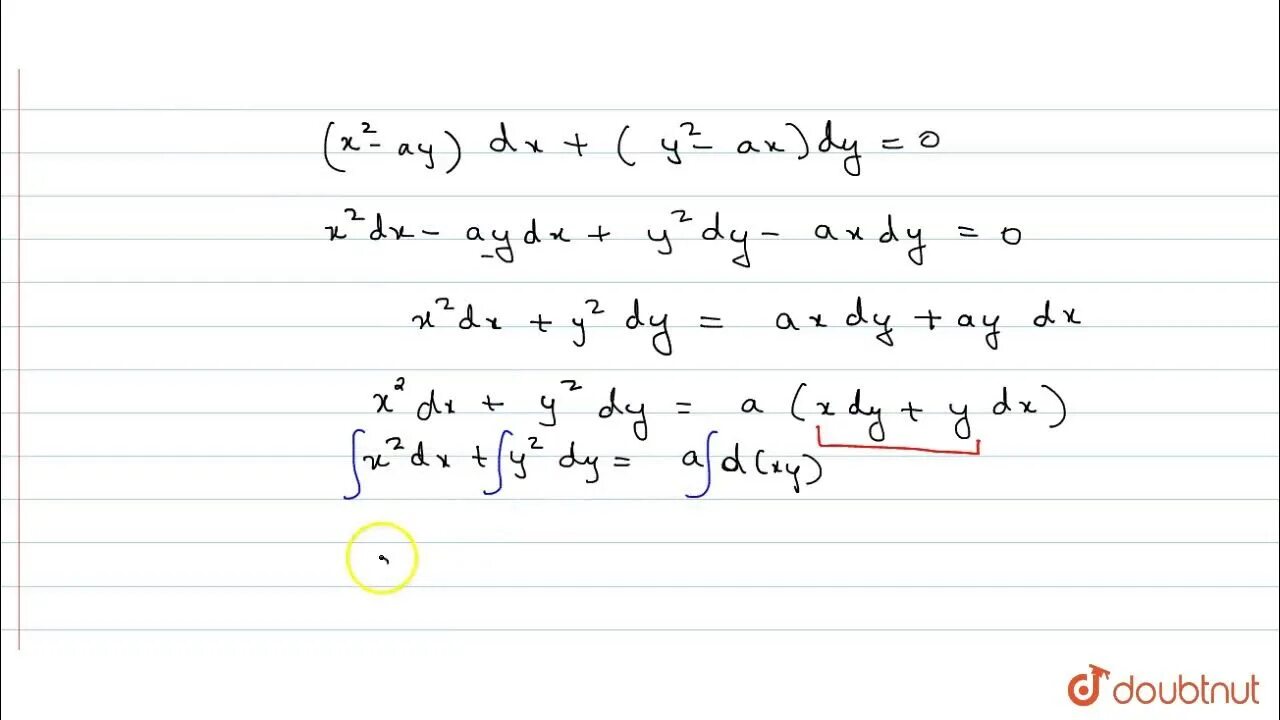 (x² - ay) dx + (y² - ax) dy = 0
x² dx - ay dx + y² dy - ax dy = 0
x² dx + y² dy = ax dy + ay dx
x² dx + y² dy = a (x dy + y dx)
∫x² dx + ∫y² dy = a∫d(xy)
doubtnut